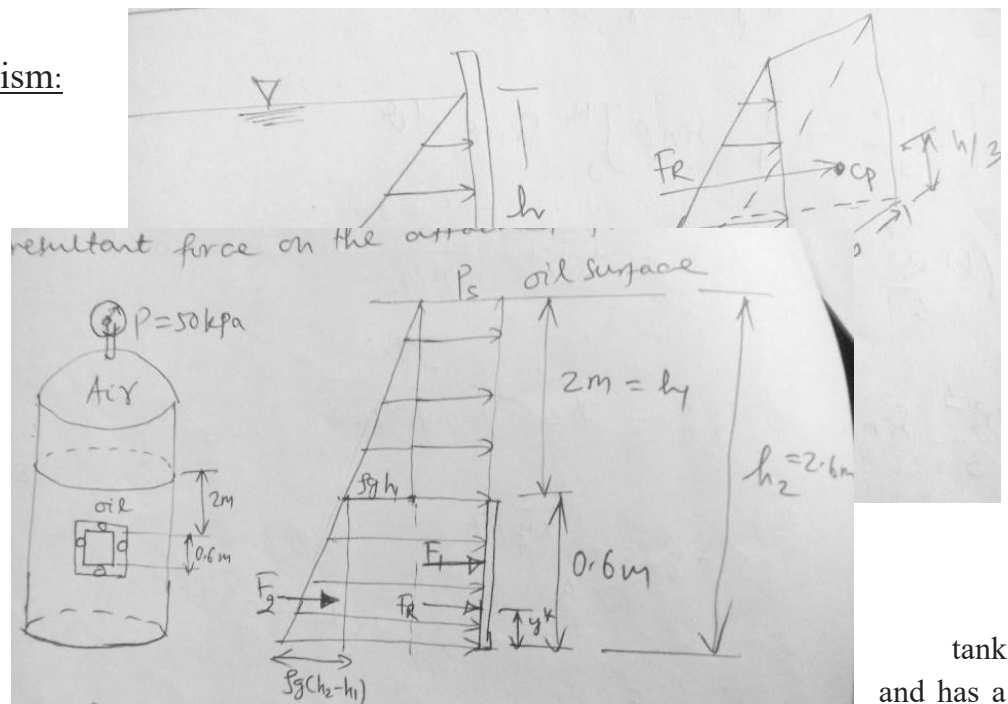 ism:
h
FR
CP
h/3
resultant force on the
Ps oil surface
P=50kpa
Air
2m = h1
h2=2.6m
oil
2m
0.6m
ρgh1
F1
0.6m
F2
FR
y*
ρg(h2-h1)
tank
and has a